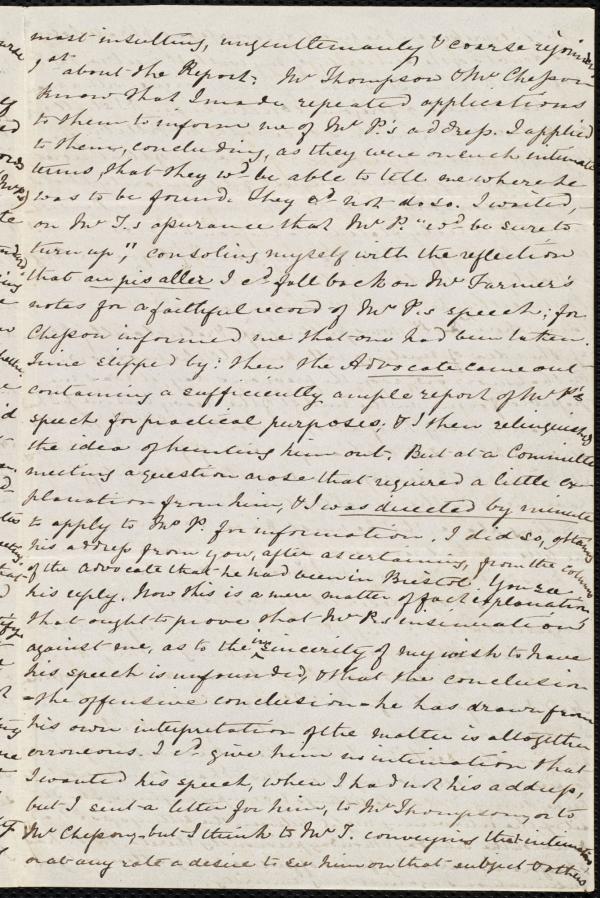 most insulting, ungentlemanly & coarse rejoinder
yet about the Report. Mr Thompson & Mr Chesson
know that I made repeated applications
to them to inform me of Mr P.'s address. I applied
to them, concluding, as they were on such intimate
terms, that they wd be able to tell me where he
was to be found. They cd not do so. I waited,
on Mr T.s assurance that Mr P. "wd be sure to
turn up," consoling myself with the reflection
that au pis aller I cd fall back on Mr Farmer's
notes for a faithful record of Mr P.s speech; for
Chesson informed me that one had been taken.
Time slipped by: then the Advocate came out
containing a sufficiently ample report of Mr P's
speech for practical purposes: & I then relinquished
the idea of hunting him out. But at a Committee
meeting a question arose that required a little ex-
planation from him, & I was directed by minute
to apply to Mr P. for information. I did so, obtaining
his address from you, after ascertaining, from the columns
of the Advocate that he had been in Bristol. You see
his reply. Now this is a mere matter of fact explanation
that ought to prove that Mr P.s insinuation
against me, as to the insincerity of my wish to have
his speech is unfounded, & that the conclusion
- the offensive conclusion - he has drawn from
his own interpretation of the matter is altogether
erroneous. I cd give him no intimation that
I wanted his speech, when I had not his address,
but I sent a letter for him, to Mr Thompson, or to
Mr Chesson, - but I think to Mr T. conveying that intimation
or at any rate a desire to see him on that subject & others